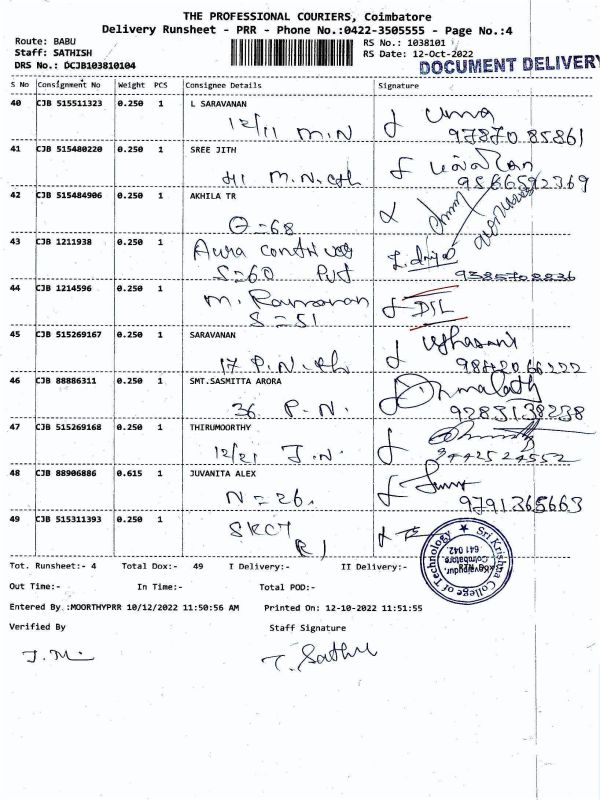 THE PROFESSIONAL COURIERS, Coimbatore
Delivery Runsheet - PRR - Phone No.:0422-3505555 - Page No.:4
Route: BABU
Staff: SATHISH
DRS No.: DCJB103810104
RS No.: 1038101
RS Date: 12-Oct-2022
DOCUMENT DELIVERY
S No Consignment No Weight PCS Consignee Details Signature
40 CJB 515511323 0.250 1 L SARAVANAN
12/11 M.N Uma
97870 85861
41 CJB 515480220 0.250 1 SREE JITH
9566592369
42 CJB 515484906 0.250 1 AKHILA TR
43 CJB 1211938 0.250 1 Aura
S=60 Pvt
9385708836
44 CJB 1214596 0.250 1 M. Ramanan
S=51
45 CJB 515269167 0.250 1 SARAVANAN
17 P.N.
98420 66222
46 CJB 88886311 0.250 1 SMT.SASMITTA ARORA
36 P.N.
9283138238
47 CJB 515269168 0.250 1 THIRUMOORTHY
12/21 J.N.
48 CJB 88906886 0.615 1 JUVANITA ALEX
N=26.
9791365663
49 CJB 515311393 0.250 1 SKCT
Sri Krishna College of Technology
Kovaipudur,
Coimbatore
641 042
Tot. Runsheet:- 4 Total Dox:- 49 I Delivery:- II Delivery:-
Out Time:- In Time:- Total POD:-
Entered By :MOORTHYPRR 10/12/2022 11:50:56 AM Printed On: 12-10-2022 11:51:55
Verified By Staff Signature
J.M T. Sathu